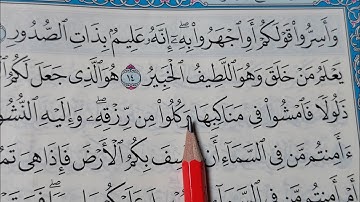 وَأَسِرُّوا۟ قَوْلَكُمْ أَوِ ٱجْهَرُوا۟ بِهِۦٓ إِنَّهُۥ عَلِيمٌۢ بِذَاتِ ٱلصُّدُورِ
يَعْلَمُ مَنْ خَلَقَ وَهُوَ ٱللَّطِيفُ ٱلْخَبِيرُ ١٤ هُوَ ٱلَّذِى جَعَلَ لَكُمُ
ذَلُولًا فَٱمْشُوا۟ فِى مَنَاكِبِهَا وَكُلُوا۟ مِن رِّزْقِهِۦ وَإِلَيْهِ ٱلنُّشُو
ءَأَمِنتُم مَّن فِى ٱلسَّمَآءِ أَن سِفَ بِكُمُ ٱلْأَرْضَ فَإِذَا هِىَ تَمُ
أَمْ أَمِنتُم مَّن فِى ٱلسَّمَآءِ